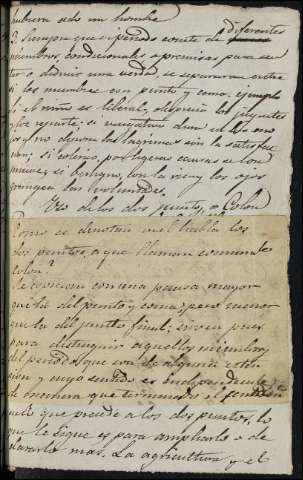 hubiera sido un hombre
3. Siempre que el periodo conste de diferentes
miembros, condicionales o premisas para sen-
tar o deducir una verdad, se separaran entre
si los miembros con punto y coma, ejemplo
Si el niño es liberal, despues los juguetes
y los reparte; si vengativo
por los lagrimas sin la satisfac
cion; si colerico, por ligeras causas se con
mueve; si benigno, con la risa y los ojos
grangea las voluntades.
Uso de los dos puntos, o Colon
Como se denotan en el habla los
dos puntos, a que llaman comunmte
Colon?
Se conocen con una pausa mayor
que la del punto y coma, pero menor
que la del punto final; sirven pues
para distinguir aquellos miembros
del periodo, que son de alguna esten
sion y cuyo sentido es independiente
de manera que terminado el sentido
que precede a los dos puntos, lo
que le sigue es para ampliarlo o de
clararlo mas. La agricultura y el